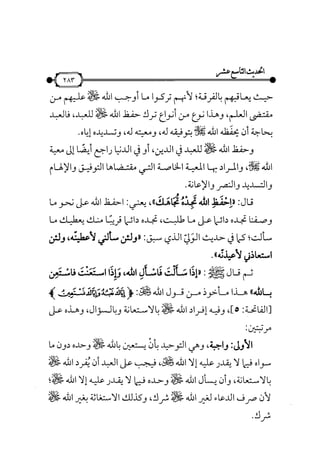 الحديث التاسع عشر
٢٨٣
حيث يعاقبهم بالفرقة؛ لأنهم تركوا ما أوجب الله ﷻ عليهم من
مقتضى العلم، وهذا نوع من أنواع ترك حفظ الله للعبد، فالعبد
بحاجة أن يحفظه الله ﷻ بتوفيقه له، ومعيته له، وتسديده إياه.
وحفظ الله ﷻ للعبد في الدين، أو في الدنيا راجع أيضًا إلى معية
الله ﷻ، والمراد بها المعية الخاصة التي مقتضاها التوفيق والإلهام
والتسديد والنصر والإعانة.
قال: «احْفَظِ اللهَ تَجِدْهُ تُجَاهَكَ»، يعني: احفظ الله على نحو ما
وصفنا تجده دائما على ما طلبت، تجده دائما قريبًا منك يعطيك ما
سألت؛ كما في حديث الولي الذي سبق: «ولئن سألني لأعطينه، ولئن
استعاذني لأعيذنه».
ثم قال ﷺ: «إِذَا سَأَلْتَ فَاسْأَلِ الله، وَإِذَا اسْتَعَنْتَ فَاسْتَعِن
بِالله» هذا مأخوذ من قول الله ﷻ: ﴿إِيَّاكَ نَعْبُدُ وَإِيَّاكَ نَسْتَعِينُ﴾
[الفاتحة: ٥]، وفيه إفراد الله ﷻ بالاستعانة وبالسؤال، وهذه على
مرتبتين:
الأولى: واجبة، وهي التوحيد بأن يستعين بالله ﷻ وحده دون ما
سواه فيما لا يقدر عليه إلا الله ﷻ، فيجب على العبد أن يُفرد الله ﷻ
بالاستعانة، وأن يسأل الله ﷻ وحده فيما لا يقدر عليه إلا الله ﷻ؛
لأن صرف الدعاء لغير الله ﷻ شرك، وكذلك الاستغاثة بغير الله ﷻ
شرك.